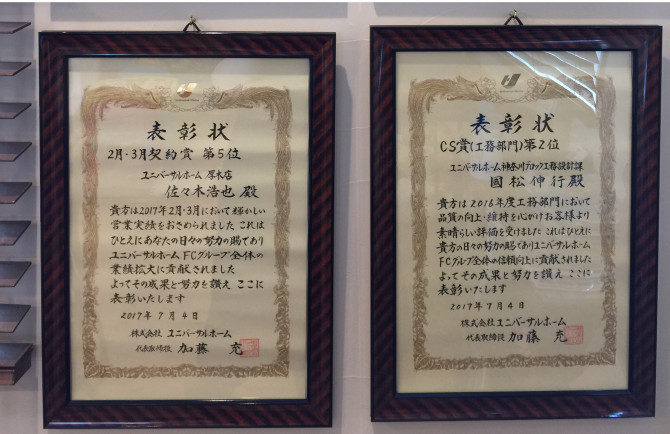 表彰状
2月・3月契約賞 第5位
ユニバーサルホーム 厚木店
佐々木浩也 殿
貴方は2017年2月・3月において輝かしい
営業実績をおさめられました これは
ひとえにあなたの日々の努力の賜であり
ユニバーサルホームFCグループ全体の
業績拡大に貢献されました
よってその成果と努力を讃え ここに
表彰いたします
2017年 7月 4日
株式会社 ユニバーサルホーム
代表取締役 加藤 充
表彰状
CS賞(工務部門)第2位
ユニバーサルホーム神奈川ブロック工務設計課
國松伸行殿
貴方は2016年度工務部門において
品質の向上・維持を心がけお客様より
素晴らしい評価を受けました これはひとえに
貴方の日々の努力の賜でありユニバーサルホーム
FCグループ全体の信頼向上に貢献されました
よってその成果と努力を讃え ここに
表彰いたします
2017年 7月 4日
株式会社 ユニバーサルホーム
代表取締役 加藤 充